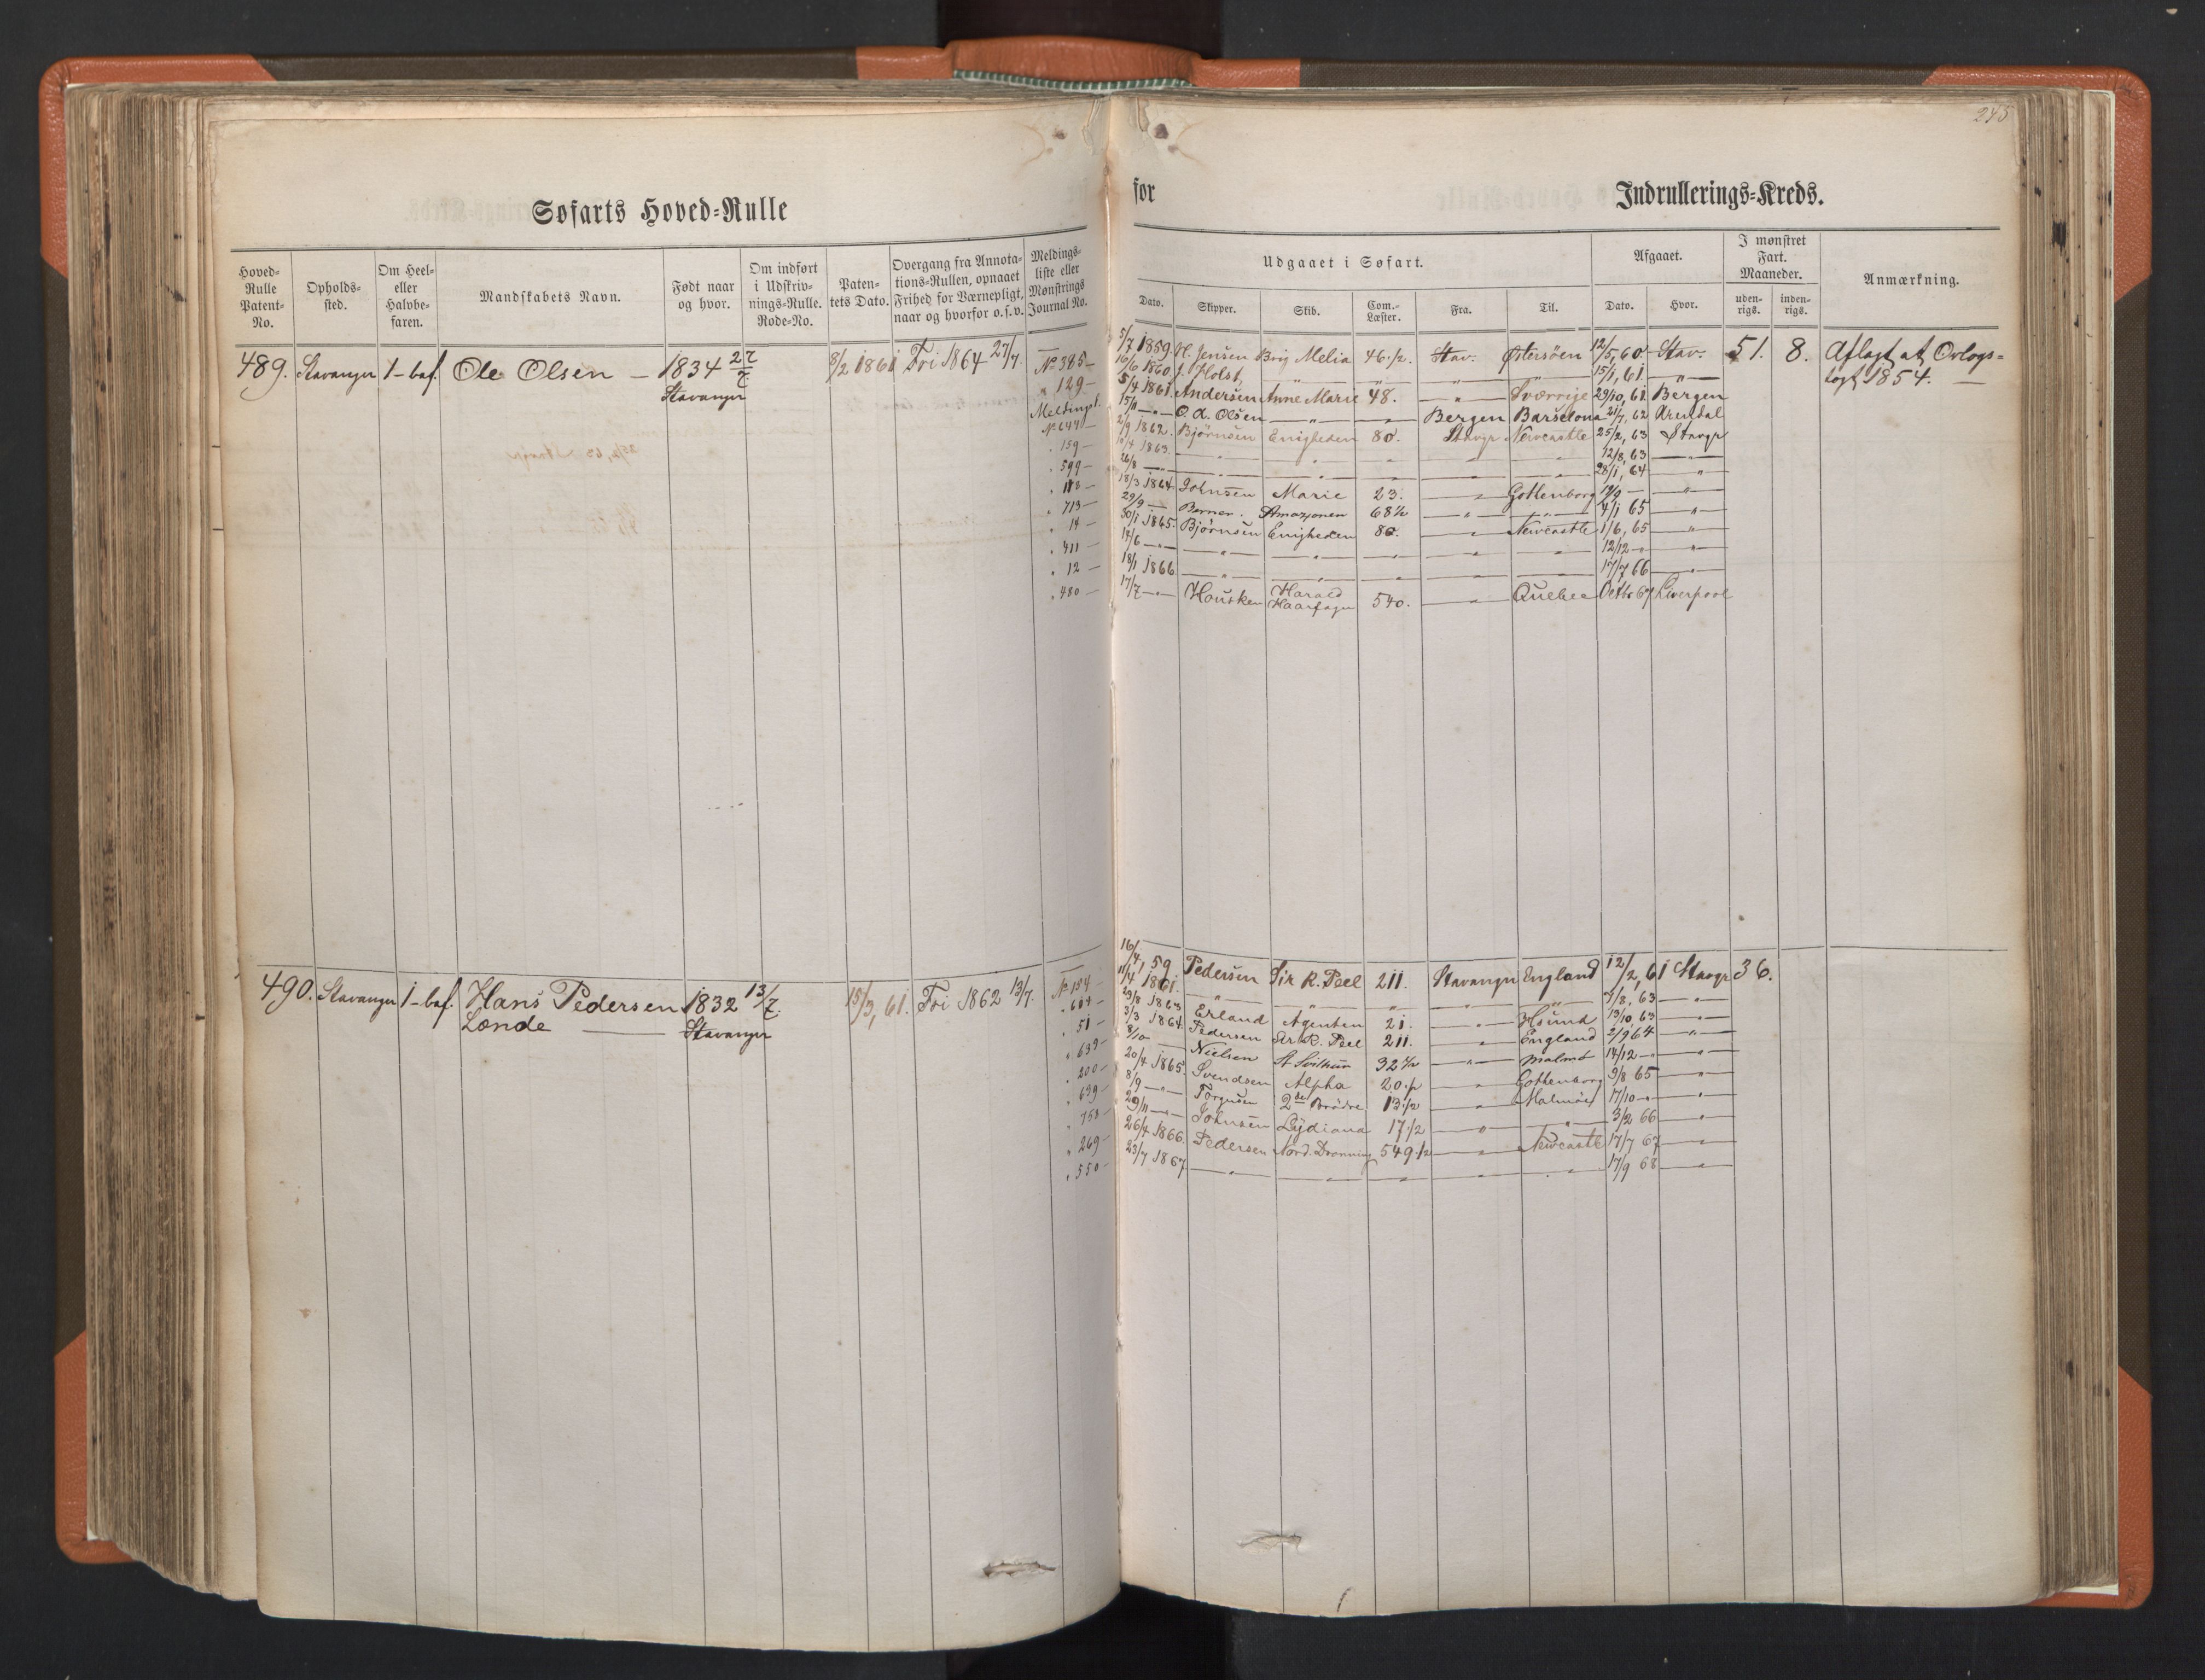 245
Søfarts Hoved-Rulle
for
Indrullerings-Kreds.
Hoved-Rulle Patent-No.
Opholds-sted.
Om Heel- eller Halvbe-faren.
Mandskabets Navn.
Født naar og hvor.
Om indført i Udskriv-nings-Rulle. Rode-No.
Paten-tets Dato.
Overgang fra Annota-tions-Rullen, opnaaet Frihed for Værnepligt, naar og hvorfor o. s. v.
Meldings-liste eller Mønstrings Journal No.
Udgaaet i Søfart.
Afgaaet.
I mønstret Fart. Maaneder.
Anmærkning.
Dato. Skipper. Skib. Com.-Læster. Fra. Til. Dato. Hvor. uden-rigs. inden-rigs.
489. Stavanger 1-baf. Ole Olsen – 1834 27/7 8/2 1861 Fri 1864 27/7. No 385 –
Stavanger
" 129 –
Meldingsl.
No 644 –
" 159 –
" 599 –
" 118 –
" 713 –
" 14 –
" 411 –
" 12 –
" 480 –
5/7 1859. H. Jensen Brig Melia 46 1/2. Stav: Østersöen 12/5, 60 Stav: 51. 8. Aflagt at Orlogs=
16/6 1860. J. Holst, " " " " 15/1, 61 " togt 1854. –
5/4 1861. Andersen Anne Marie 48. " Sværrige 29/10, 61 Bergen
15/11 –"– O. A. Olsen " " Bergen Barselona 21/7, 62 Arendal
2/9 1862. Bjørnsen Enigheden 80. Stavgr Newcastle 25/2, 63 Stavgr
1863. " " " " " 12/8, 63 "
26/8 –"– " " " " " 28/1, 64 "
18/3 1864 Johnsen Marie 23. " Gottenborg – "
29/9 – Berner. Amazonen 68 1/2 " " 4/1 65 "
30/1 1865. Bjørnsen Enigheden 80. " Newcastle 1/6, 65 "
14/6 –"– " " " " " 12/12 –"– "
18/1 1866 " " " " " 17/7 66 "
17/7 –"– Housken Harald Haarfager 540. " Quebec Octbr 67 Liverpool
490. Stavanger 1-baf. Hans Pedersen 1832 13/7. 15/3, 61. Fri 1862 13/7. No 154 –
Lænde Stavanger
" 51 –
" 639 –
" 200 –
" 639 –
" 758 –
" 269 –
" 550 –
16/4, 59. Pedersen Sir R. Peel 211. Stavanger England 12/2, 61 Stavgr 36.
11/4 1861. " " " " " 3/8, 63 "
29/8 1863 Erland Agenten 21. " 13/10 63 "
3/3 1864. Pedersen Sir R. Peel 211. " England 2/9 64 "
8/10 – Nielsen St Svithun 32 1/2 " Malmö 14/12 –"– "
20/4 1865. Svendsen Alpha 20 1/2 " Gottenborg 9/8 65 "
8/9 –"– Torgersen 2de Brödre 13 1/2 " Malmöe 17/10 –"– "
29/11 –"– Johnsen Lydiana 17 1/2 " " 3/2 66 "
26/4 1866. Pedersen Nord. Dronning 549 1/2 " Newcastle 17/7 67 "
23/7 1867 " " " " " 17/9 68 "